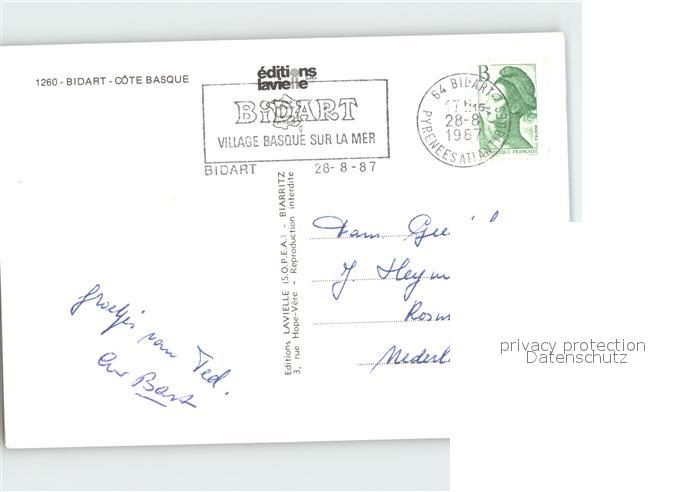 1260 - BIDART - CÔTE BASQUE
éditions
lavielle
BIDART
VILLAGE BASQUE SUR LA MER
BIDART 28-8-87
64 BIDART
28-8
1987
PYRENEES ATLANTIQUES
B
Editions LAVIELLE (S.O.P.E.A.) - BIARRITZ
3, rue Hope-Vère - Reproduction interdite
Fam.
J. Heym
Rosm
Nederl
groetjes van Ted.
privacy protection
Datenschutz